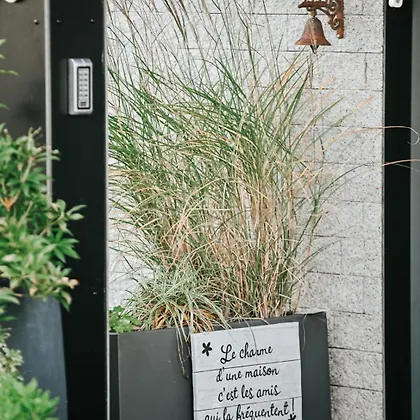 Le charme
d'une maison
c'est les amis
qui la fréquentent